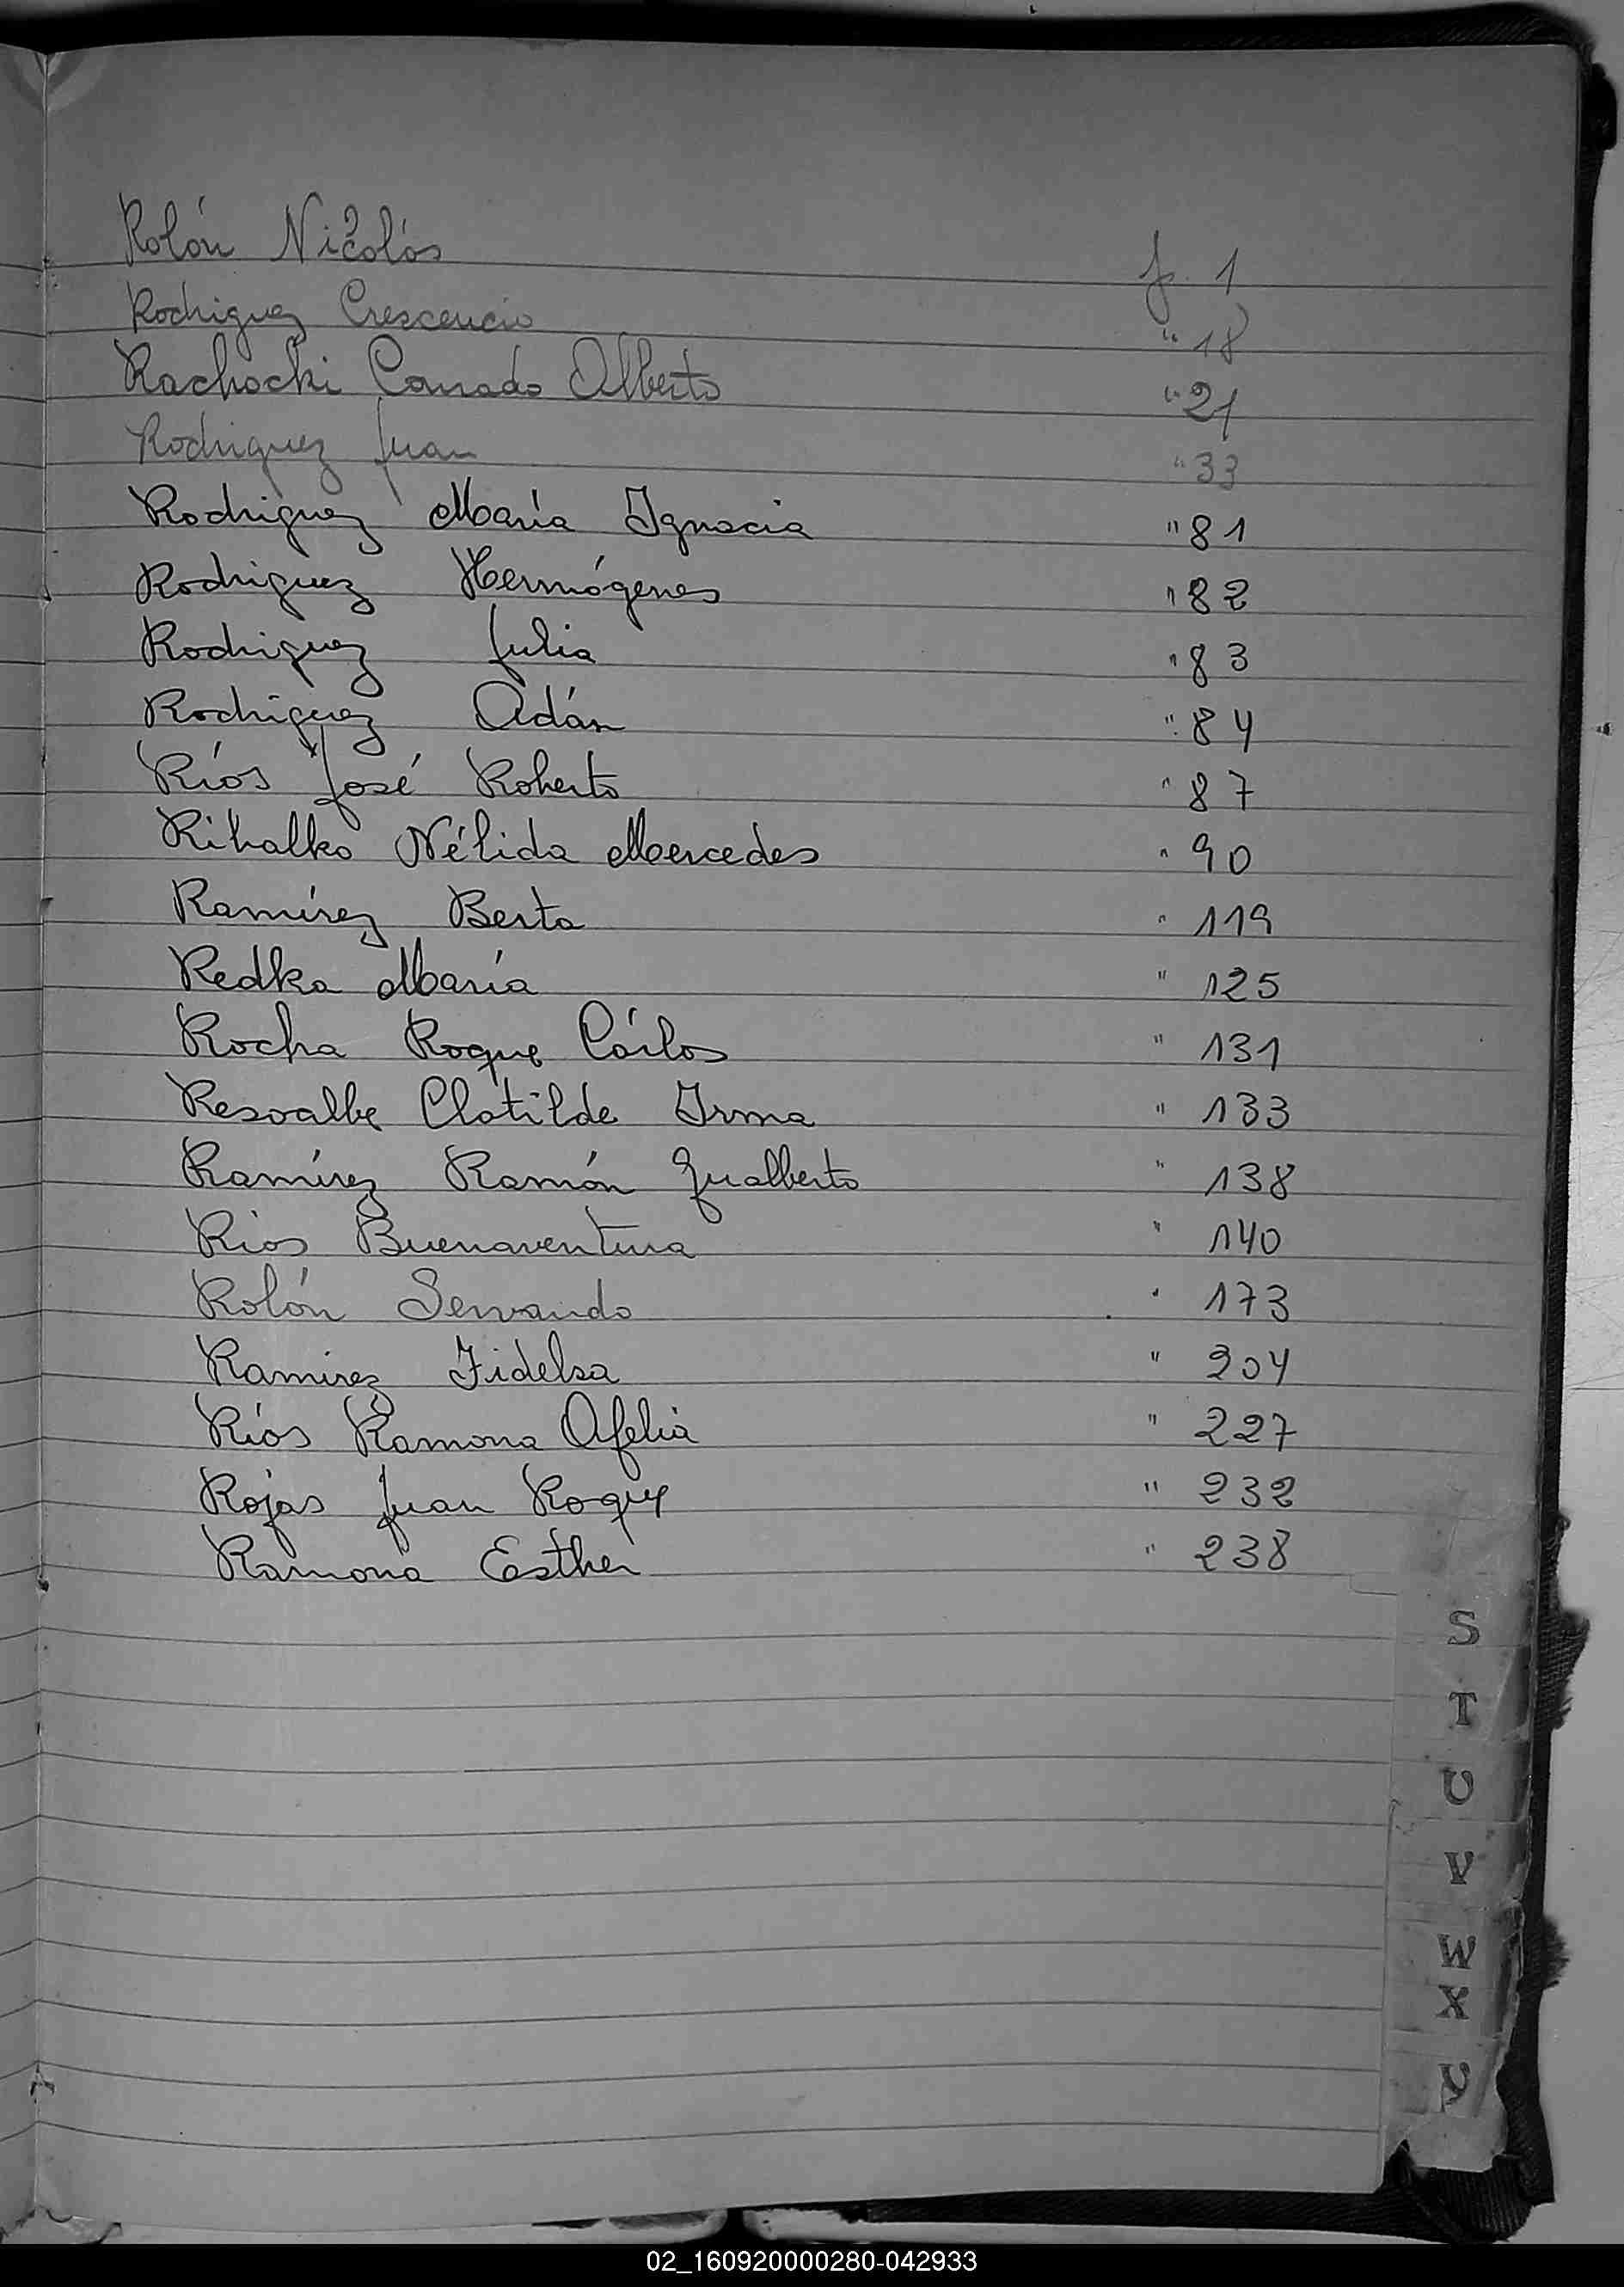 Rolón Nicolás f. 1
Rodriguez Crescencio " 18
Rachocki Conrado Alberto " 21
Rodriguez Juan " 33
Rodriguez María Ignacia " 81
Rodriguez Hermógenes " 82
Rodriguez Julia " 83
Rodriguez Adán " 84
Ríos José Roberto " 87
Rihalko Nélida Mercedes " 90
Ramírez Berta " 119
Redka María " 125
Rocha Roque Cárlos " 131
Clotilde Irma " 133
Ramírez Ramón Gualberto " 138
Rios Buenaventura " 140
Rolón Servando " 173
Ramírez Fidelsa " 204
Ríos Ramona Ofelia " 227
Rojas Juan Roque " 232
Ramona Esther " 238
S
T
U
V
W
X
Y
02_160920000280-042933